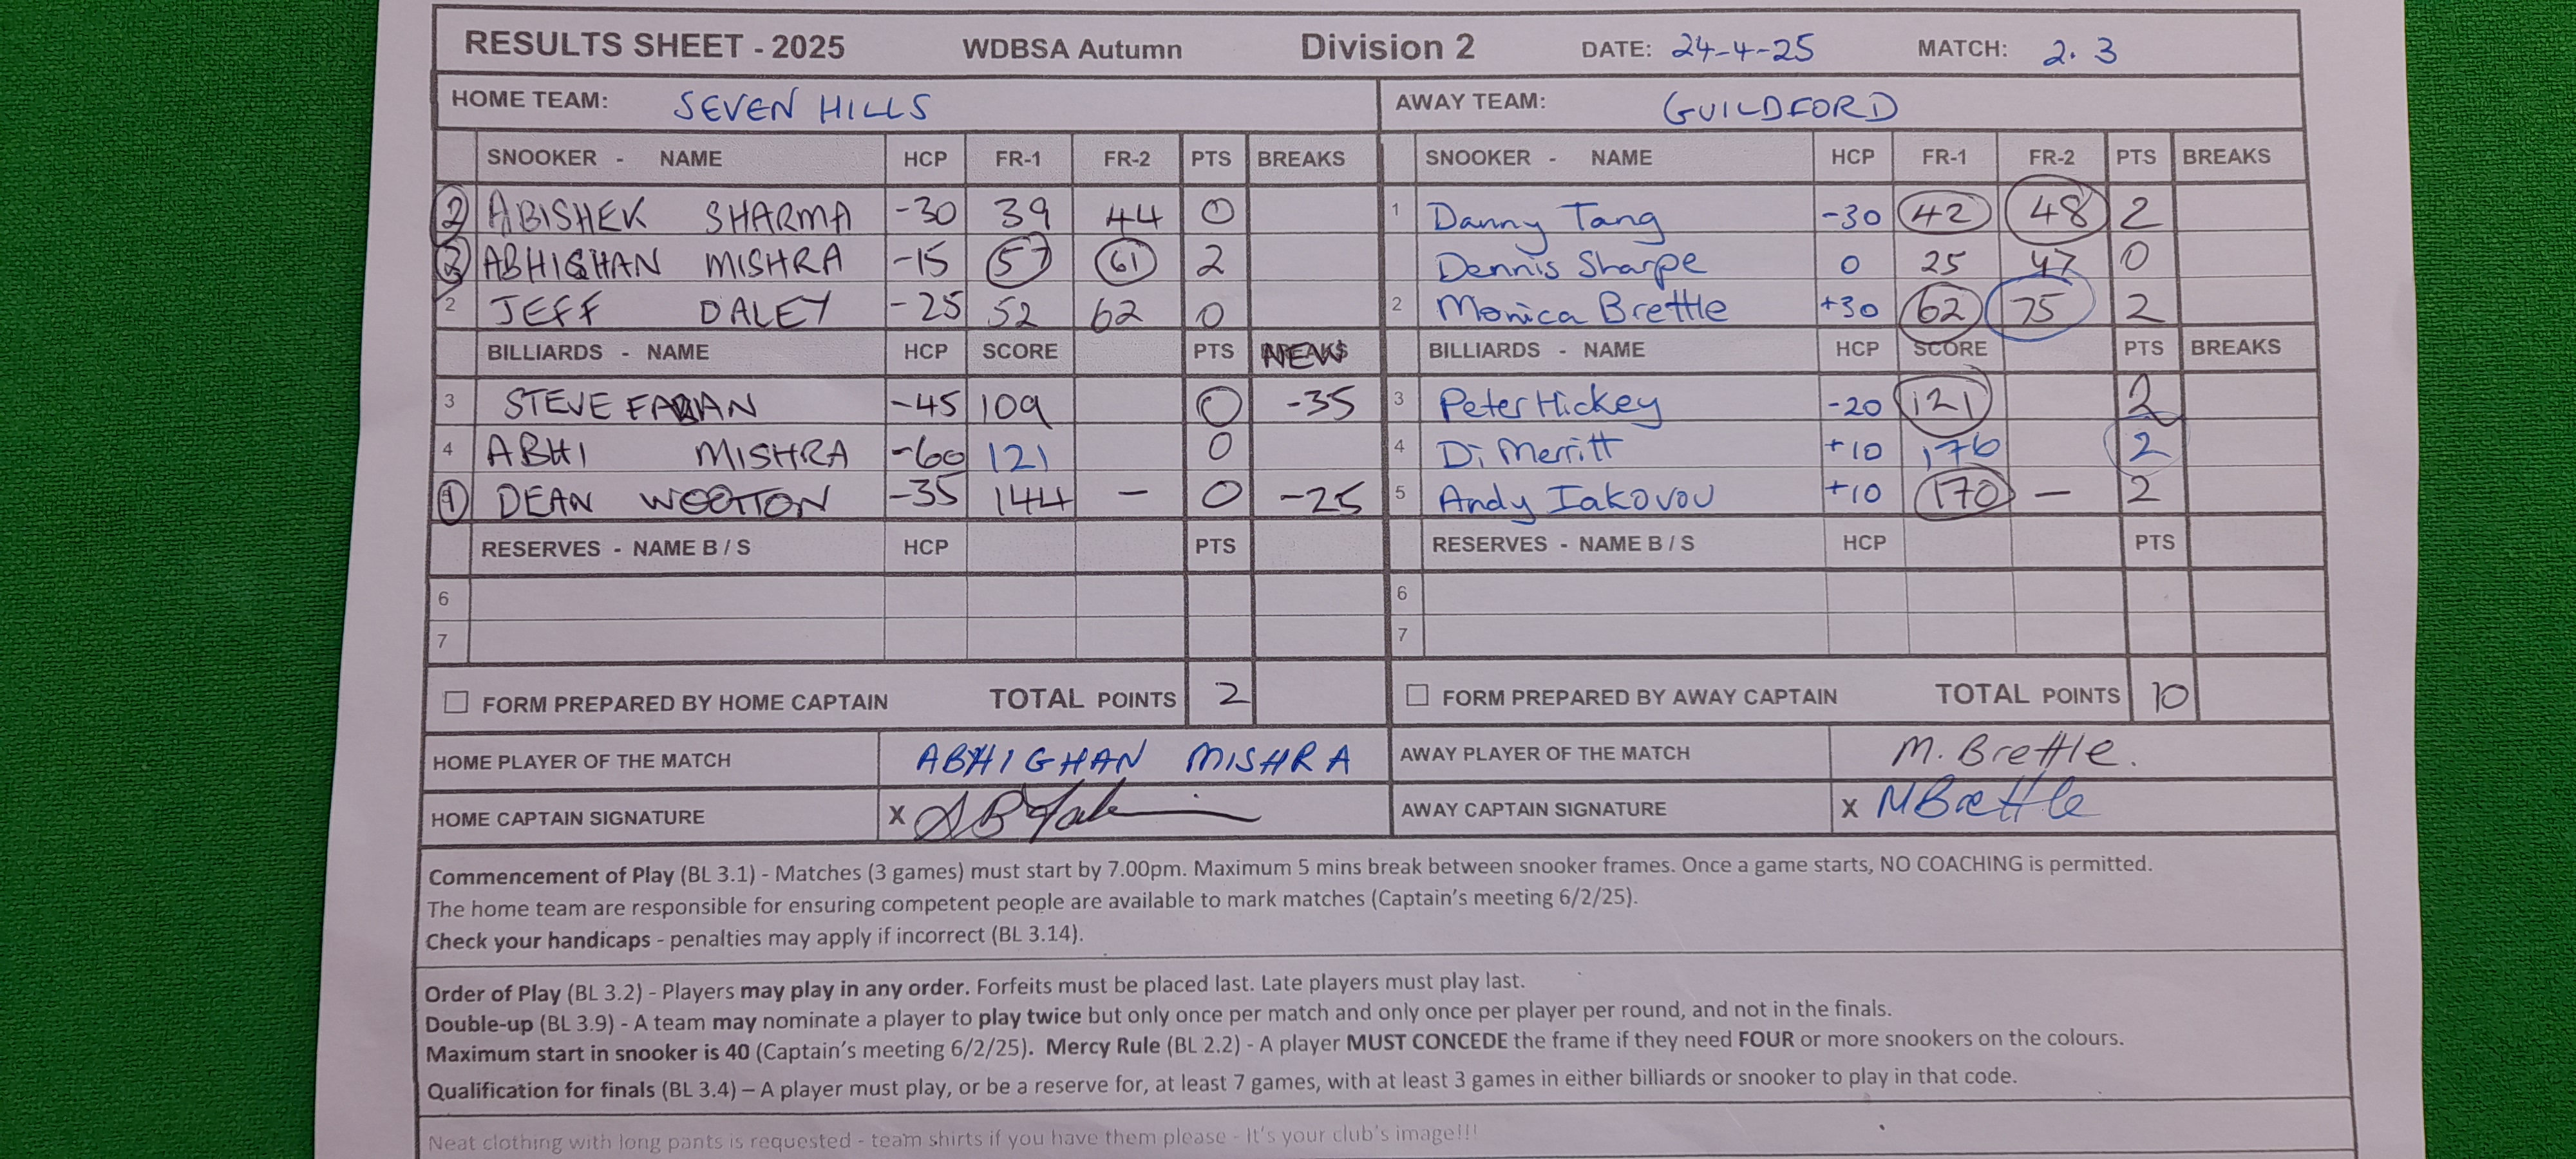 RESULTS SHEET - 2025 WDBSA Autumn Division 2 DATE: 24-4-25 MATCH: 2.3
HOME TEAM: SEVEN HILLS AWAY TEAM: GUILDFORD
SNOOKER - NAME HCP FR-1 FR-2 PTS BREAKS SNOOKER - NAME HCP FR-1 FR-2 PTS BREAKS
2 ABISHEK SHARMA -30 39 44 0 1 Danny Tang -30 42 48 2
3 ABHIGHAN MISHRA -15 57 61 2 Dennis Sharpe 0 25 47 0
2 JEFF DALEY -25 52 62 0 2 Monica Brettle +30 62 75 2
BILLIARDS - NAME HCP SCORE PTS NEW BILLIARDS - NAME HCP SCORE PTS BREAKS
3 STEVE FABIAN -45 109 0 -35 3 Peter Hickey -20 121 2
4 ABHI MISHRA -60 121 0 4 Di Merritt +10 176 2
1 DEAN WOOTTON -35 144 - 0 -25 5 Andy Iakovou +10 170 - 2
RESERVES - NAME B / S HCP PTS RESERVES - NAME B / S HCP PTS
6 6
7 7
FORM PREPARED BY HOME CAPTAIN TOTAL POINTS 2 FORM PREPARED BY AWAY CAPTAIN TOTAL POINTS 10
HOME PLAYER OF THE MATCH ABHIGHAN MISHRA AWAY PLAYER OF THE MATCH M. Brettle.
HOME CAPTAIN SIGNATURE X AWAY CAPTAIN SIGNATURE X MBrettle
Commencement of Play (BL 3.1) - Matches (3 games) must start by 7.00pm. Maximum 5 mins break between snooker frames. Once a game starts, NO COACHING is permitted.
The home team are responsible for ensuring competent people are available to mark matches (Captain's meeting 6/2/25).
Check your handicaps - penalties may apply if incorrect (BL 3.14).
Order of Play (BL 3.2) - Players may play in any order. Forfeits must be placed last. Late players must play last.
Double-up (BL 3.9) - A team may nominate a player to play twice but only once per match and only once per player per round, and not in the finals.
Maximum start in snooker is 40 (Captain's meeting 6/2/25). Mercy Rule (BL 2.2) - A player MUST CONCEDE the frame if they need FOUR or more snookers on the colours.
Qualification for finals (BL 3.4) – A player must play, or be a reserve for, at least 7 games, with at least 3 games in either billiards or snooker to play in that code.
Neat clothing with long pants is requested - team shirts if you have them please - It's your club's image!!!